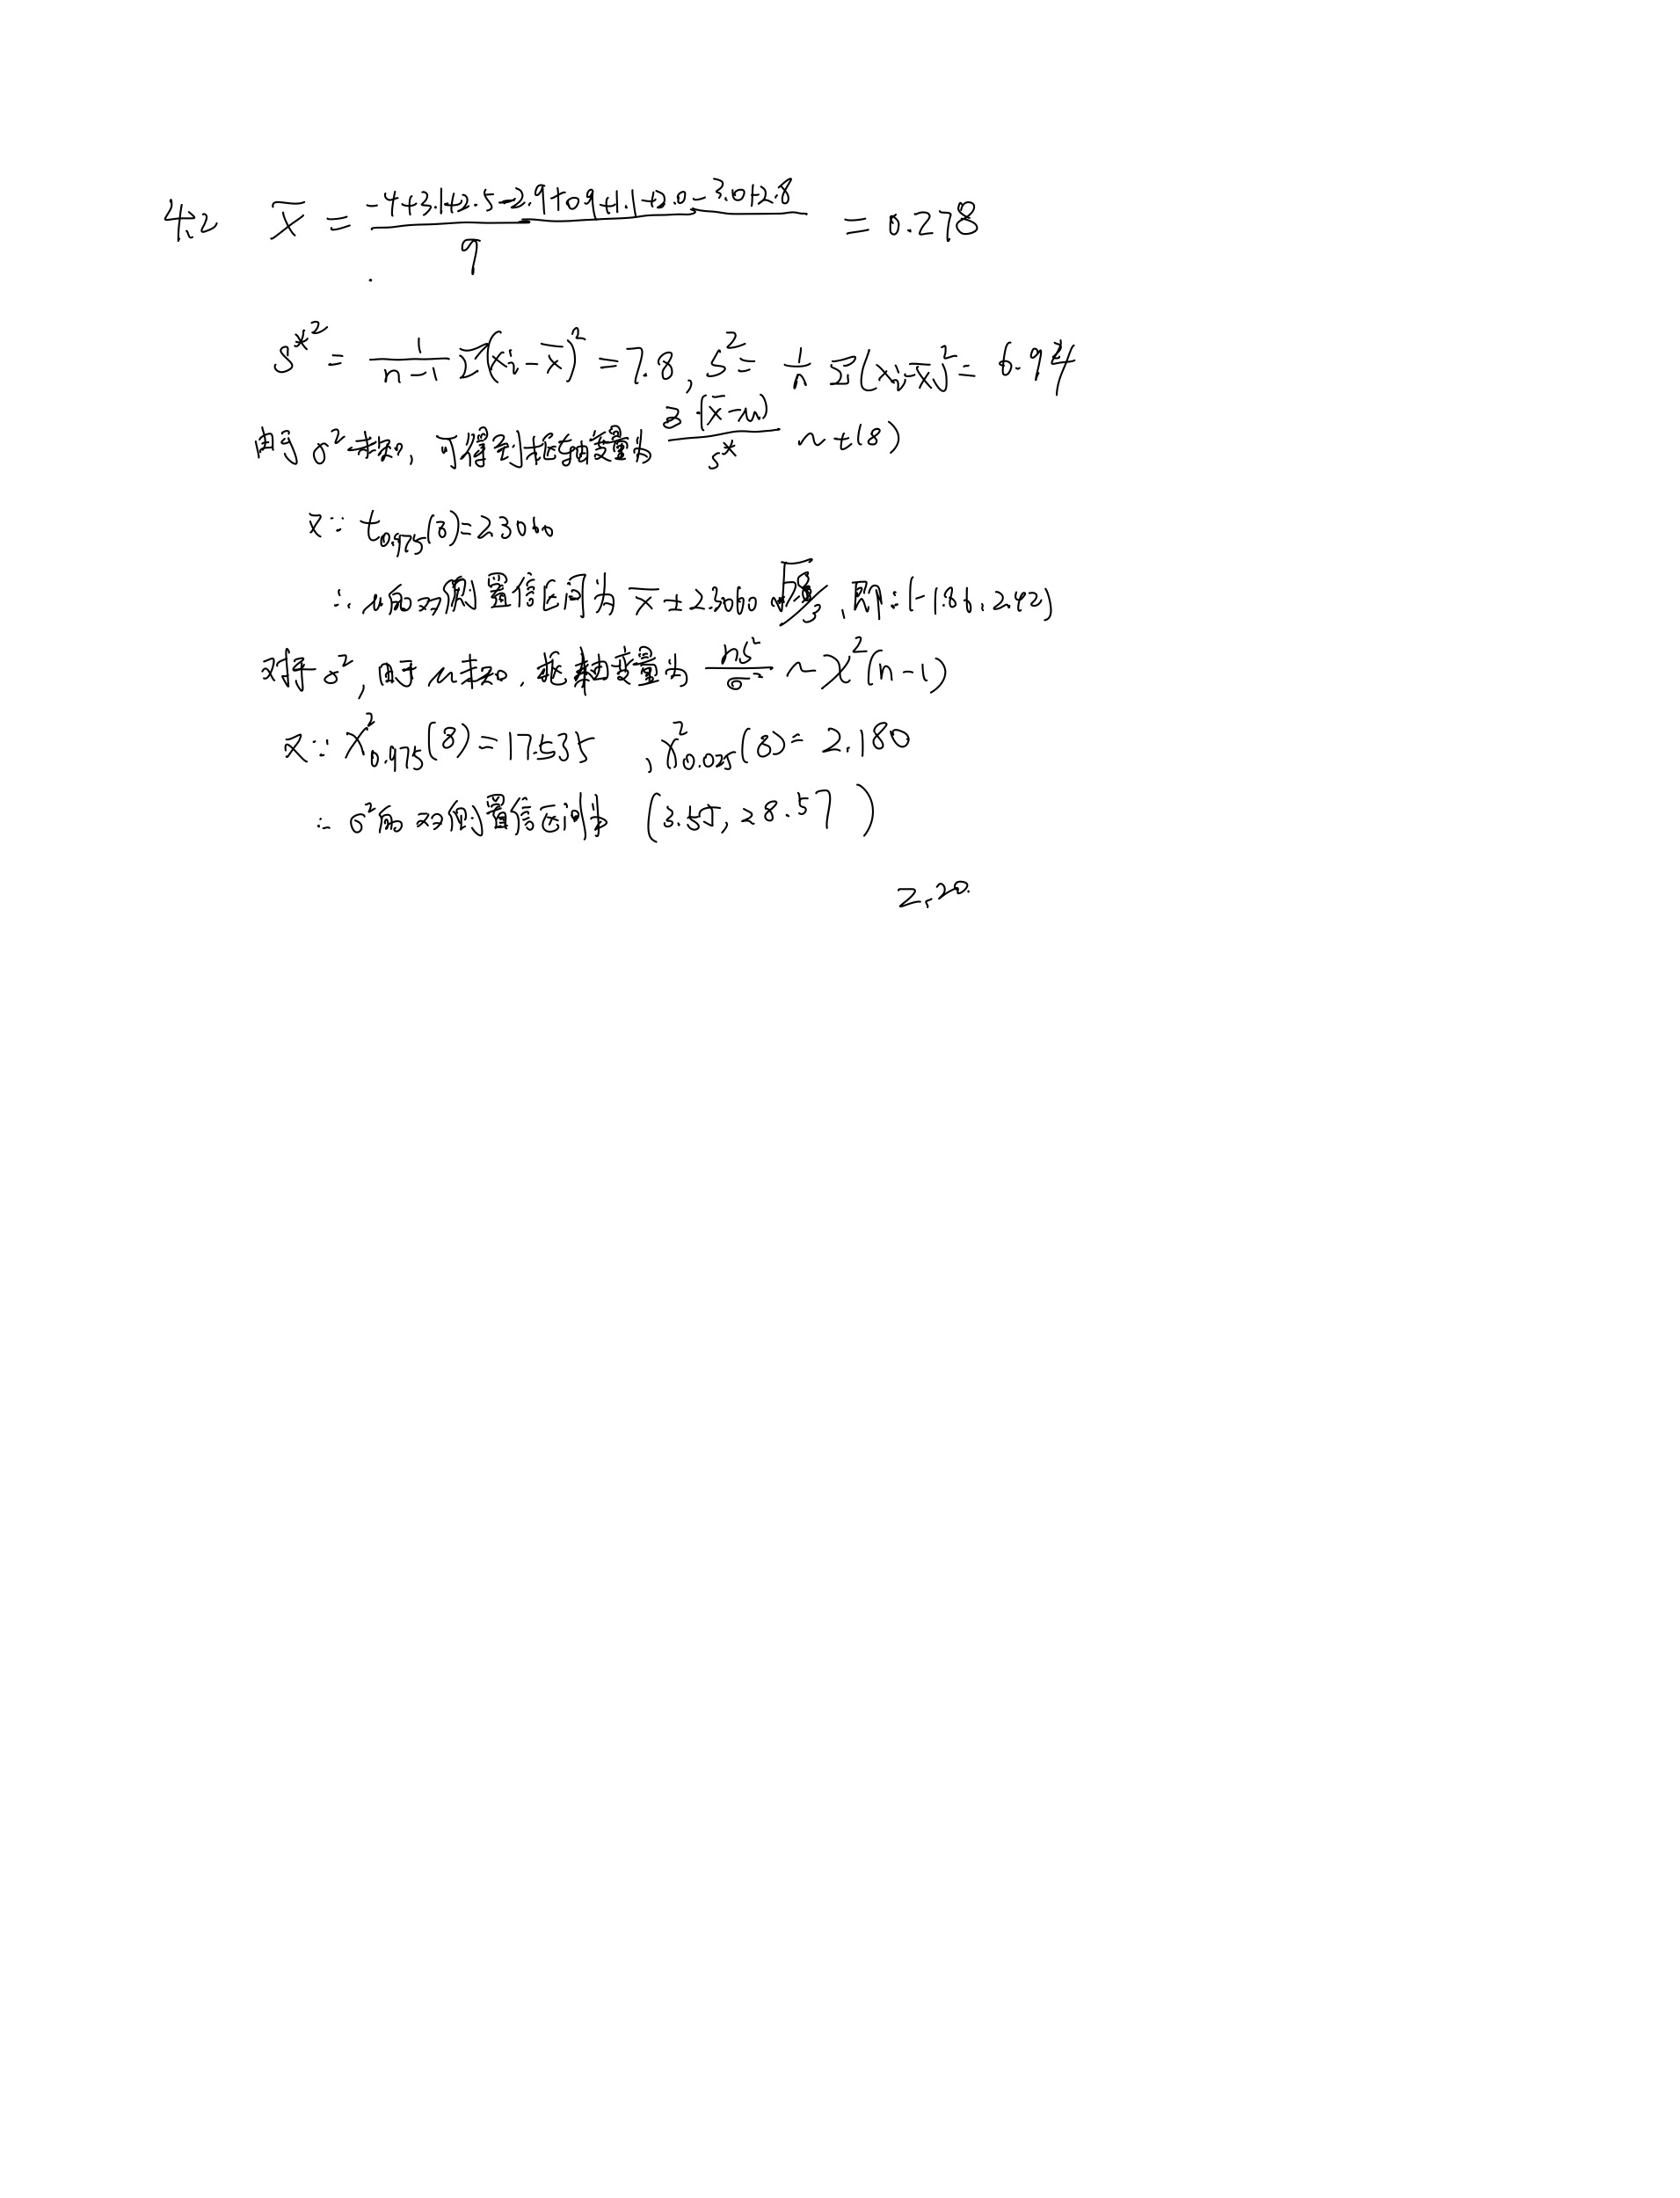 4.2 x̄ = (-4+3.1+2.5-2.9+0.9+1.1+2.0-3.0+2.8)/9 = 0.278
S*² = 1/(n-1) Σ(xᵢ-x̄)² = 7.8, S² = 1/n Σ(xᵢ-x̄)² = 6.94
由于 σ² 未知, 可得到枢轴变量为 3·(x̄-μ)/S* ~ t(8)
又∵ t₀.₉₇₅(8)=2.3060
∴ μ的双侧置信区间为 x̄ ± 2.3060 √7.8/3, 即:(-1.86, 2.42)
对于σ², 由于μ未知, 枢轴变量为 nS²/σ² ~ χ²(n-1)
又∵ χ²₀.₉₇₅(8)=17.535 , χ²₀.₀₂₅(8)= 2.180
∴ σ²的双侧置信区间为 (3.55, 28.57)
2.20.